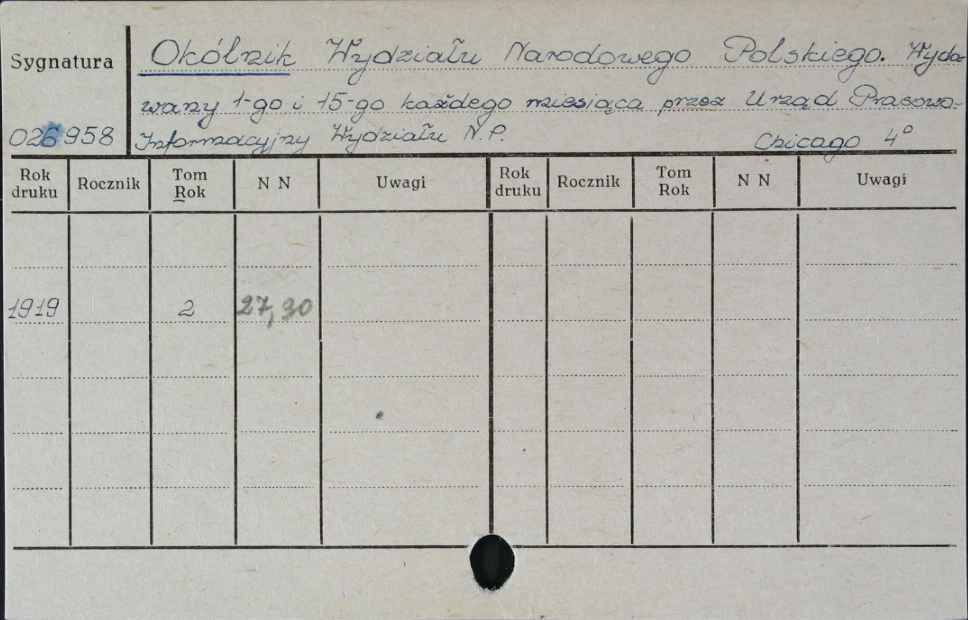 Sygnatura
Okólnik Wydziału Narodowego Polskiego. Wyda-
wany 1-go i 15-go każdego miesiąca przez Urząd Prasowo-
026958 Informacyjny Wydziału N.P. Chicago 4°
Rok druku Rocznik Tom Rok N N Uwagi Rok druku Rocznik Tom Rok N N Uwagi
1919 2 27,30